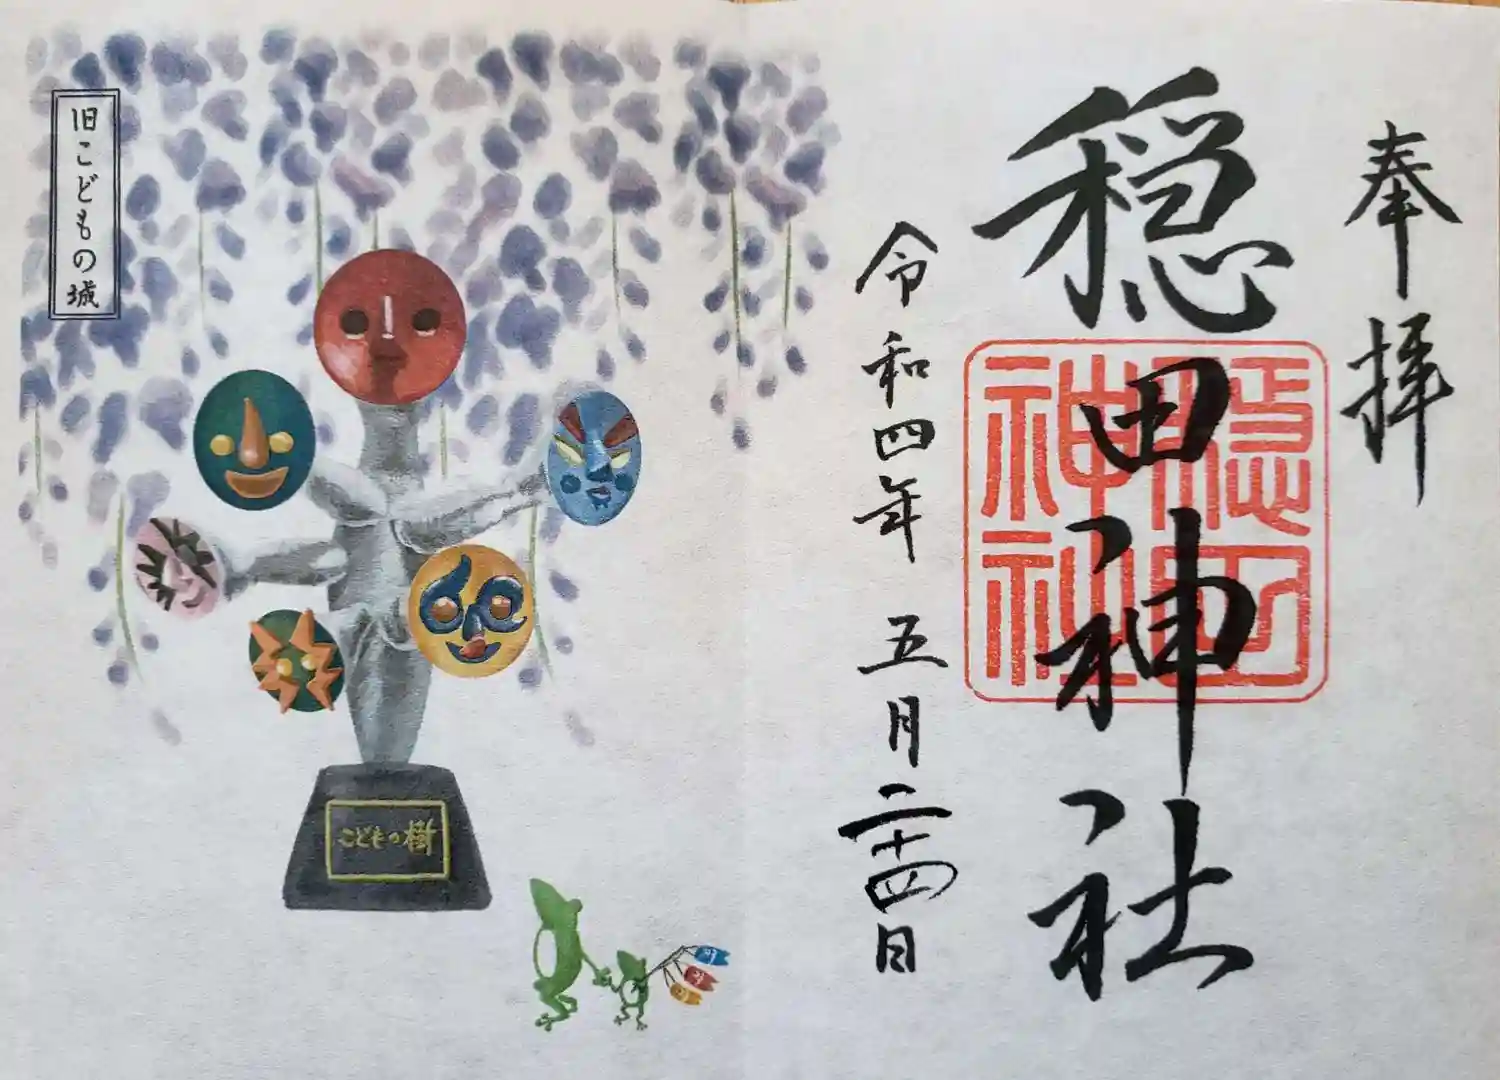 奉拝
穏田神社
穏田
神社
令和四年 五月二十四日
旧こどもの城
こどもの樹